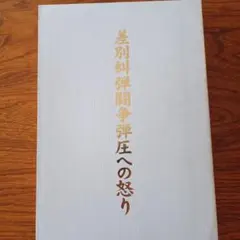 差別糾弾闘争弾圧への怒り